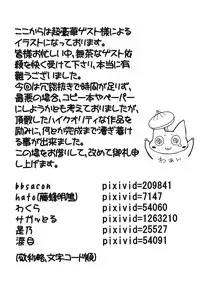 ここからは超豪華ゲスト様による
イラストになっております。
皆様お忙しい中、無茶なゲスト依
頼を快く受けて下さり、本当に有
難うございました。
今回は冗談抜きで時間が足りず、
最悪の場合、コピー本やペーパー
にしようかとも考えておりましたが、
頂戴したハイクオリティな作品を
励みに、何とか完成まで漕ぎ着け
る事が出来ました。
この場をお借りして、改めて御礼申
し上げます。
わぁん
bbsacon pixivid=209841
hato(藤蜂明鳩) pixivid=7147
わくら pixivid=54060
サガッとる pixivid=1263210
是乃 pixivid=25527
涙目 pixivid=54091
(敬称略、文字コード順)